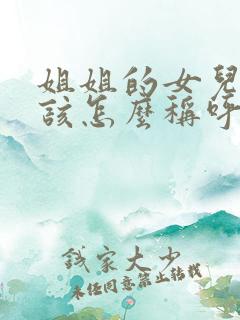 姐姐的女兒
該怎麼稱呼
錢家大少
未经同意禁止转载